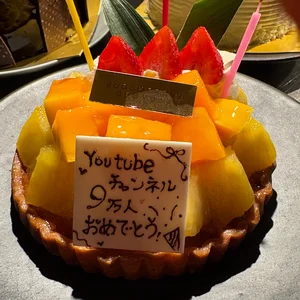 Youtube
チャンネル
9万人
おめでとう!